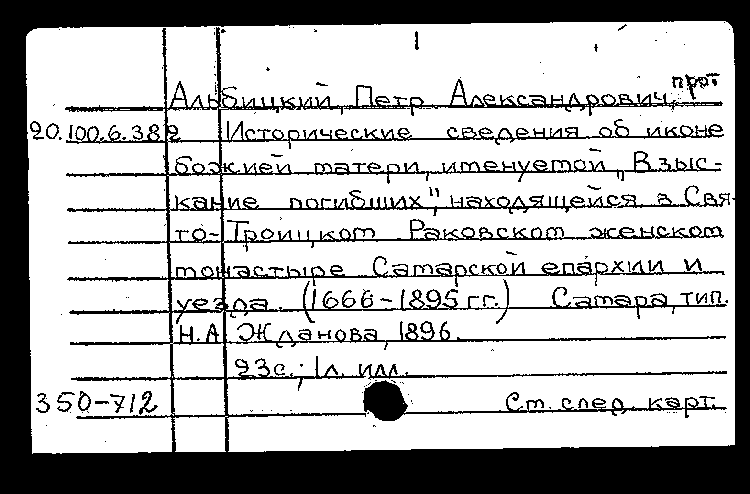 Альбицкий, Петр Александрович, прот
20.100.6.382 Исторические сведения об иконе
божией матери, именуемой „Взыс-
кание погибших", находящейся в Свя-
то-Троицком Раковском женском
монастыре Самарской епархии и
уезда. (1666-1895 гг.) Самара, тип.
Н.А Жданова, 1896.
23с.; 1л. илл.
350-712 См. след. карт.